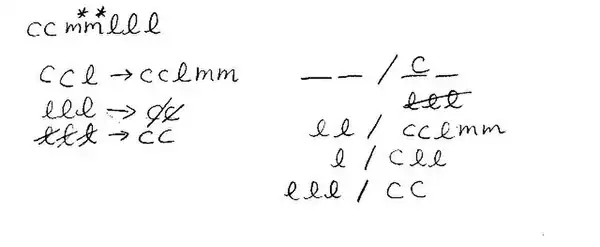 **
ccmmlll
ccl → cclmm
lll → cc
lll → cc
_ _ / c _
lll
ll / cclmm
l / cll
lll / cc